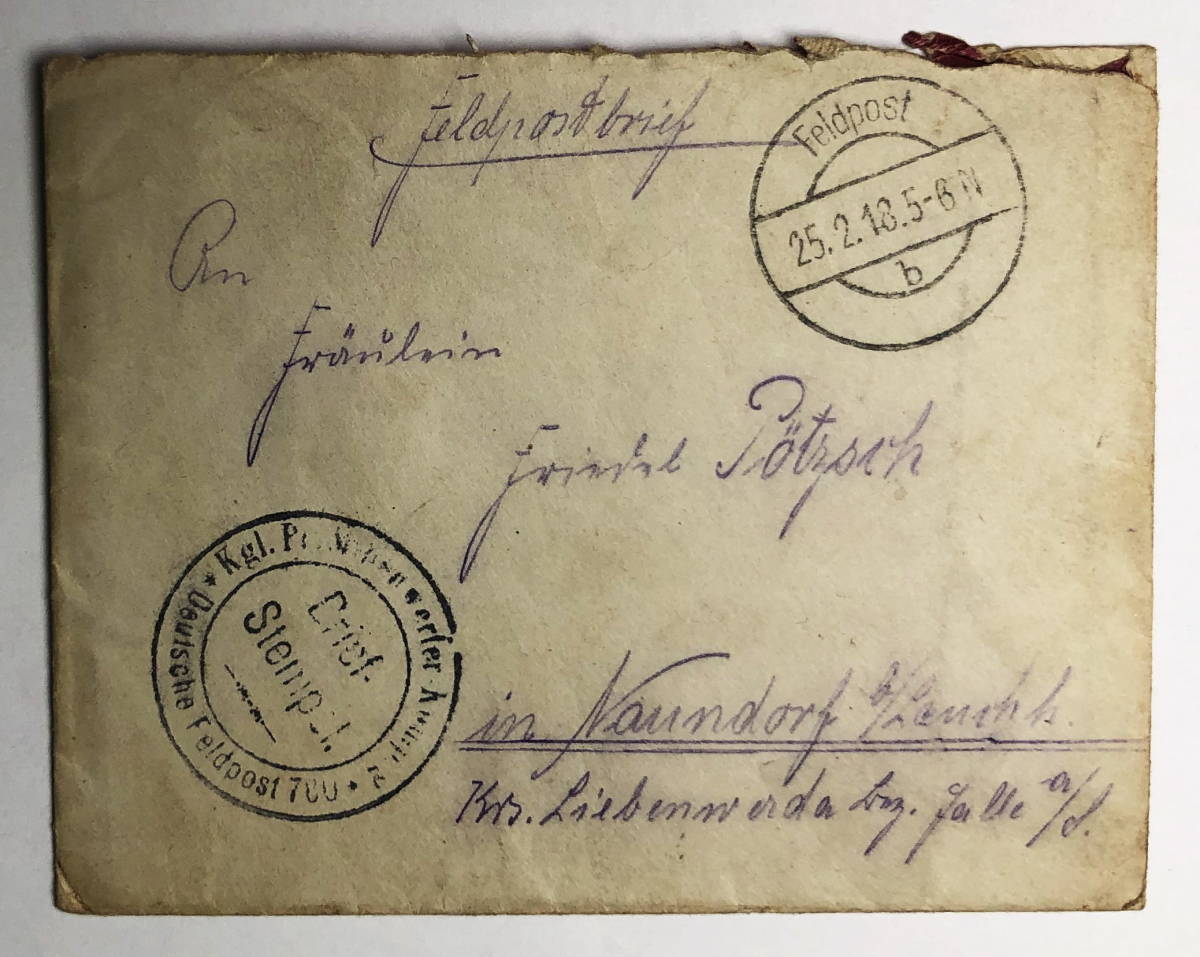 Feldpostbrief
Feldpost
25.2.18.5-6 N
b
An
Fräulein
Friedel Pötzsch
Kgl. Pr.
Brief-
Stempel.
* Deutsche Feldpost 700 *
in Naundorf b/Lauchh.
Krs. Liebenwerda Bez. Halle a/S.